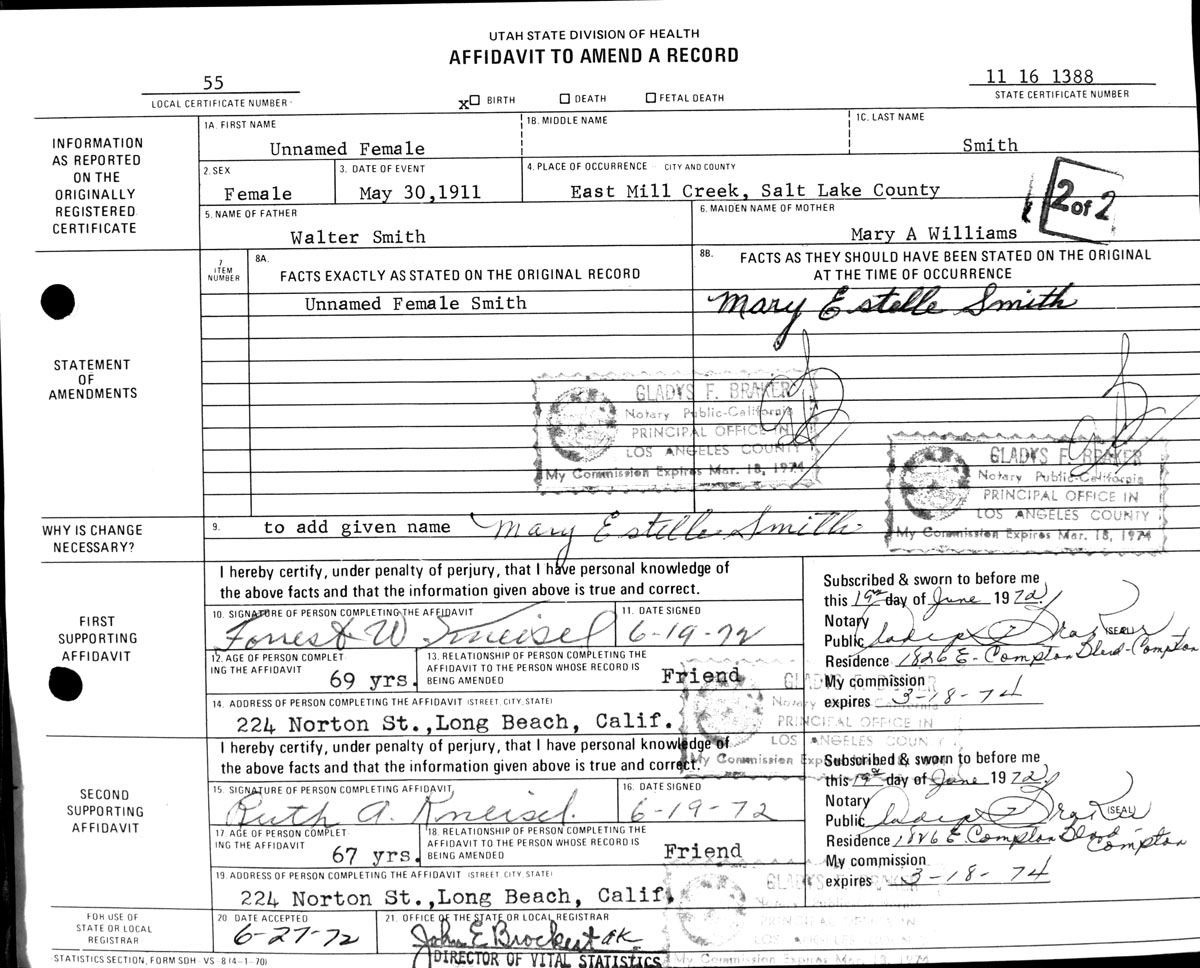 UTAH STATE DIVISION OF HEALTH
AFFIDAVIT TO AMEND A RECORD
55
LOCAL CERTIFICATE NUMBER
x☐ BIRTH ☐ DEATH ☐ FETAL DEATH
11 16 1388
STATE CERTIFICATE NUMBER
INFORMATION
AS REPORTED
ON THE
ORIGINALLY
REGISTERED
CERTIFICATE
1A. FIRST NAME 1B. MIDDLE NAME 1C. LAST NAME
Unnamed Female Smith
2. SEX 3. DATE OF EVENT 4. PLACE OF OCCURRENCE - CITY AND COUNTY
Female May 30,1911 East Mill Creek, Salt Lake County
2 of 2
5. NAME OF FATHER 6. MAIDEN NAME OF MOTHER
Walter Smith Mary A Williams
STATEMENT
OF
AMENDMENTS
7
ITEM
NUMBER
8A.
FACTS EXACTLY AS STATED ON THE ORIGINAL RECORD
8B. FACTS AS THEY SHOULD HAVE BEEN STATED ON THE ORIGINAL
AT THE TIME OF OCCURRENCE
Unnamed Female Smith Mary Estelle Smith
GLADYS F. BRAKER
Notary Public-California
PRINCIPAL OFFICE IN
LOS ANGELES COUNTY
My Commission Expires Mar. 18, 1974
GLADYS F. BRAKER
Notary Public-California
PRINCIPAL OFFICE IN
LOS ANGELES COUNTY
My Commission Expires Mar. 18, 1974
WHY IS CHANGE
NECESSARY?
9. to add given name Mary Estelle Smith
FIRST
SUPPORTING
AFFIDAVIT
I hereby certify, under penalty of perjury, that I have personal knowledge of
the above facts and that the information given above is true and correct.
10. SIGNATURE OF PERSON COMPLETING THE AFFIDAVIT 11. DATE SIGNED
Forrest W Kneisel 6-19-72
12. AGE OF PERSON COMPLET
ING THE AFFIDAVIT
69 yrs.
13. RELATIONSHIP OF PERSON COMPLETING THE
AFFIDAVIT TO THE PERSON WHOSE RECORD IS
BEING AMENDED
Friend
14. ADDRESS OF PERSON COMPLETING THE AFFIDAVIT (STREET, CITY, STATE)
224 Norton St.,Long Beach, Calif.
Subscribed & sworn to before me
this 19th day of June 1972
Notary
Public (SEAL)
Residence 1826 E. Compton Blvd-Compton
My commission
expires 3-18-74
GLADYS F. BRAKER
Notary Public-California
PRINCIPAL OFFICE IN
LOS ANGELES COUNTY
My Commission Expires
SECOND
SUPPORTING
AFFIDAVIT
I hereby certify, under penalty of perjury, that I have personal knowledge of
the above facts and that the information given above is true and correct.
15. SIGNATURE OF PERSON COMPLETING AFFIDAVIT 16. DATE SIGNED
Ruth A. Kneisel 6-19-72
17. AGE OF PERSON COMPLET
ING THE AFFIDAVIT
67 yrs.
18. RELATIONSHIP OF PERSON COMPLETING THE
AFFIDAVIT TO THE PERSON WHOSE RECORD IS
BEING AMENDED
Friend
19. ADDRESS OF PERSON COMPLETING THE AFFIDAVIT (STREET, CITY, STATE)
224 Norton St.,Long Beach, Calif.
Subscribed & sworn to before me
this 19th day of June 1972
Notary
Public (SEAL)
Residence 1826 E Compton Blvd
Compton
My commission
expires 3-18-74
FOR USE OF
STATE OR LOCAL
REGISTRAR
20. DATE ACCEPTED 21. OFFICE OF THE STATE OR LOCAL REGISTRAR
6-27-72 John E Brockert
DIRECTOR OF VITAL STATISTICS
PRINCIPAL OFFICE IN
LOS ANGELES COUNTY
My Commission Expires Mar. 18, 1974
STATISTICS SECTION, FORM SDH - VS - 8 (4-1-70)